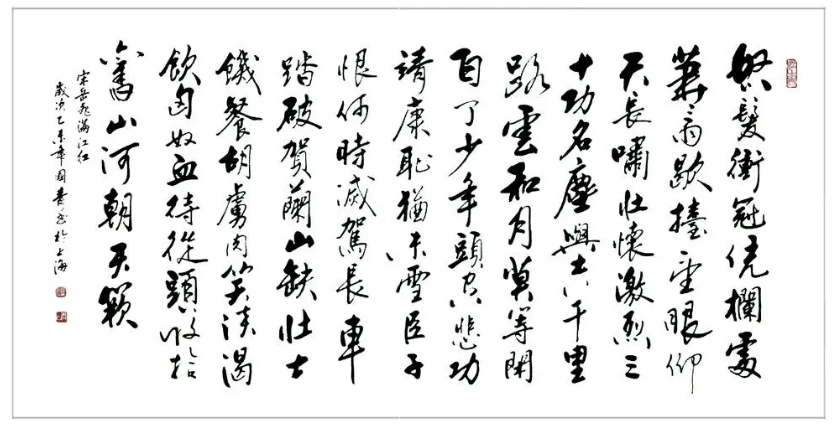 怒髮衝冠凭欄處
蕭雨歇擡望眼仰
天長嘯壯懷激烈三
十功名塵與土八千里
路雲和月莫等閑
白了少年頭空悲切
靖康恥猶未雪臣子
恨何時滅駕長車
踏破賀蘭山缺壯士
饑餐胡虜肉笑談渴
飲匈奴血待從頭收拾
舊山河朝天闕
宋岳飛滿江紅
歲次乙未年國書於上海